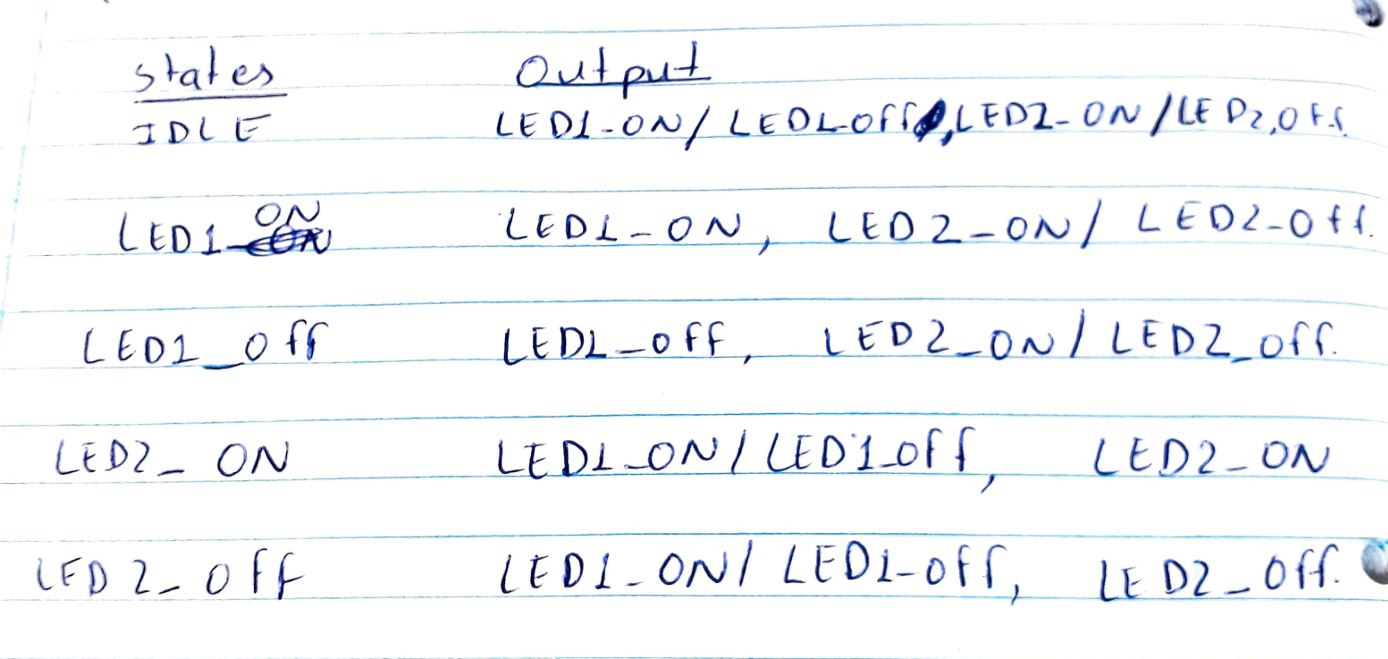 States Output
IDLE LED1-ON/ LED1-Off, LED2-ON /LED2,Off.
LED1-ON LED1-ON, LED2-ON/ LED2-Off.
LED1_Off LED1-Off, LED2_ON/ LED2_Off.
LED2_ON LED1_ON/ LED1_Off, LED2-ON
LED2_Off LED1_ON/ LED1-Off, LED2_Off.